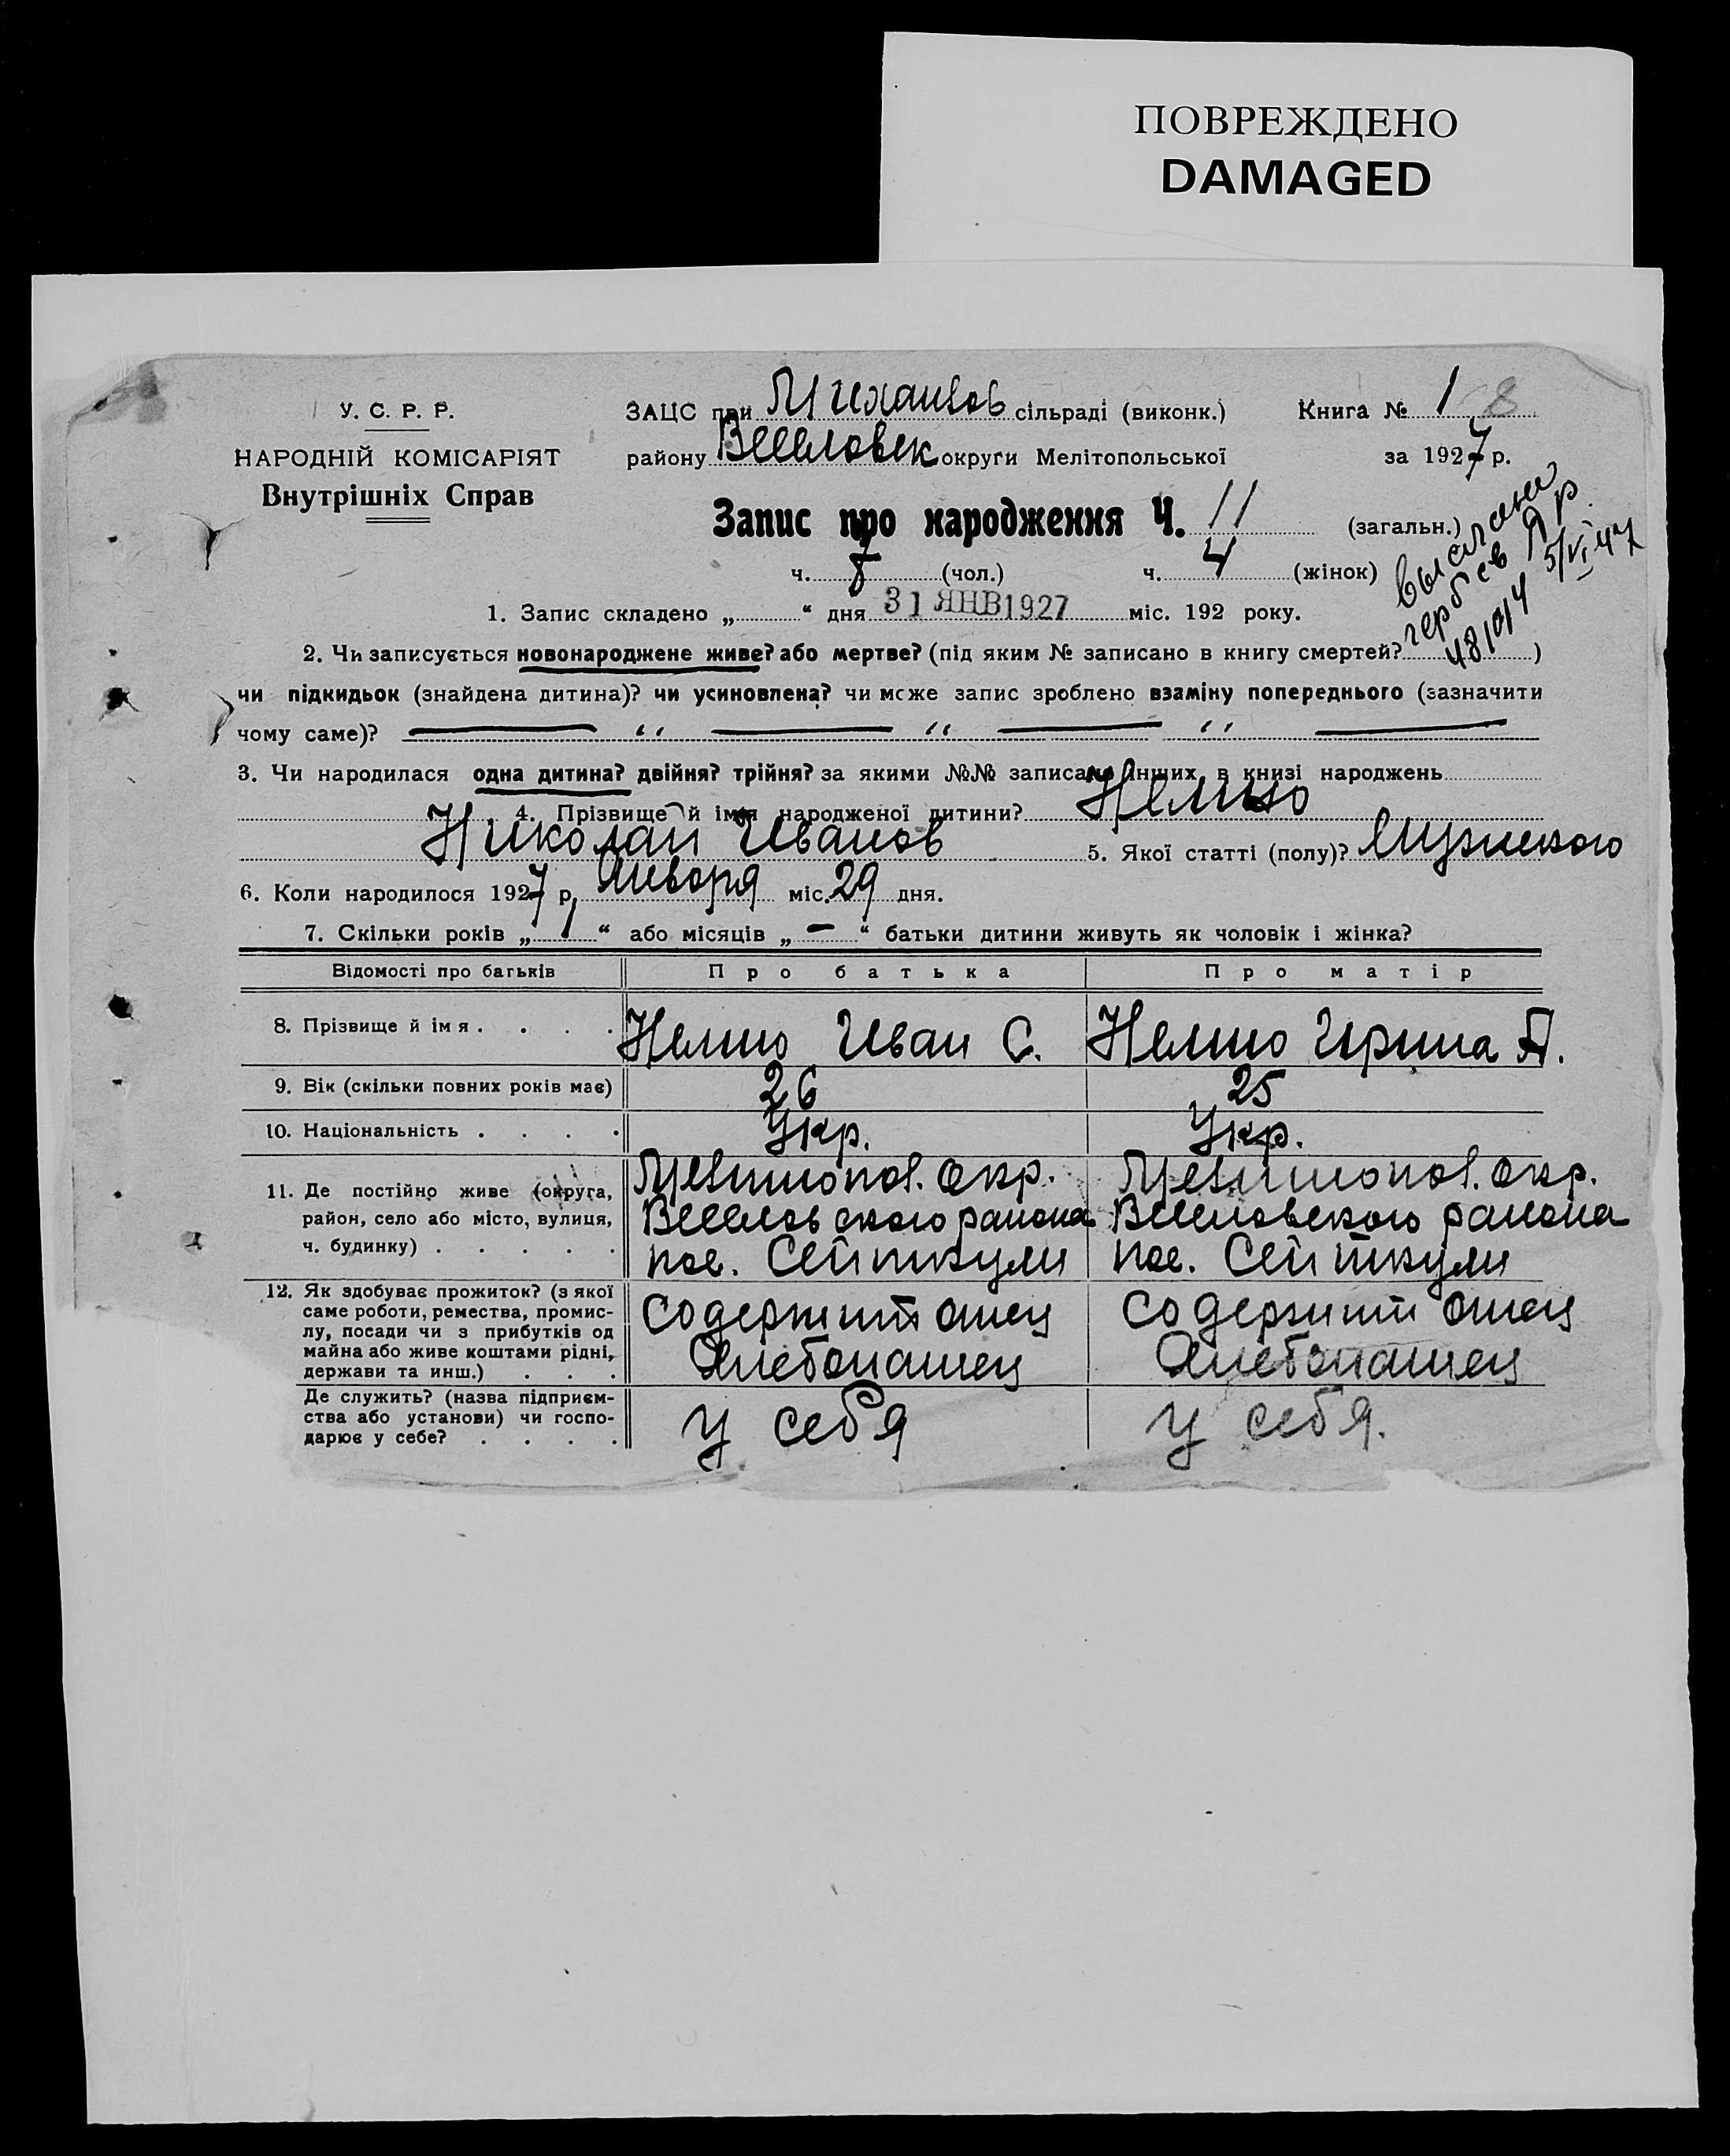 ПОВРЕЖДЕНО
DAMAGED
У. С. Р. Р.
НАРОДНІЙ КОМІСАРІЯТ
Внутрішніх Справ
ЗАЦС при Михайлов сільраді (виконк.)
району Веселовск округи Мелітопольської
Книга № 1 8
за 1927 р.
Запис про народження Ч. 11 (загальн.)
ч. (чол.) ч. 4 (жінок)
выслано
5/VI 47
1. Запис складено „ “ дня 31 ЯНВ 1927 міс. 192 року.
2. Чи записується новонароджене живе? або мертве? (під яким № записано в книгу смертей? )
чи підкидьок (знайдена дитина)? чи усиновлена? чи може запис зроблено взаміну попереднього (зазначити
чому саме)? — „ — „ — „ —
3. Чи народилася одна дитина? двійня? трійня? за якими №№ записано інших в книзі народжень
4. Прізвище й імя народженої дитини?
Николай Иванов 5. Якої статті (полу)? Мужского
6. Коли народилося 1927 р. Января міс. 29 дня.
7. Скільки років „ 1 “ або місяців „ — “ батьки дитини живуть як чоловік і жінка?
Відомості про батьків Про батька Про матір
8. Прізвище й імя . . . . Иван С. Ирина П.
9. Вік (скільки повних років має) 26 25
10. Національність . . . . Укр. Укр.
11. Де постійно живе (округа, Мелитопол. окр. Мелитопол. окр.
район, село або місто, вулиця, Веселовского района Веселовского района
ч. будинку) . . . . . пос. Сейткули пос. Сейткули
12. Як здобуває прожиток? (з якої
саме роботи, ремества, промис- Содержит отец Содержит отец
лу, посади чи з прибутків од
майна або живе коштами рідні, Хлебопашец Хлебопашец
держави та инш.) . . .
Де служить? (назва підприєм-
ства або установи) чи госпо- у себя у себя.
дарює у себе? . . . .